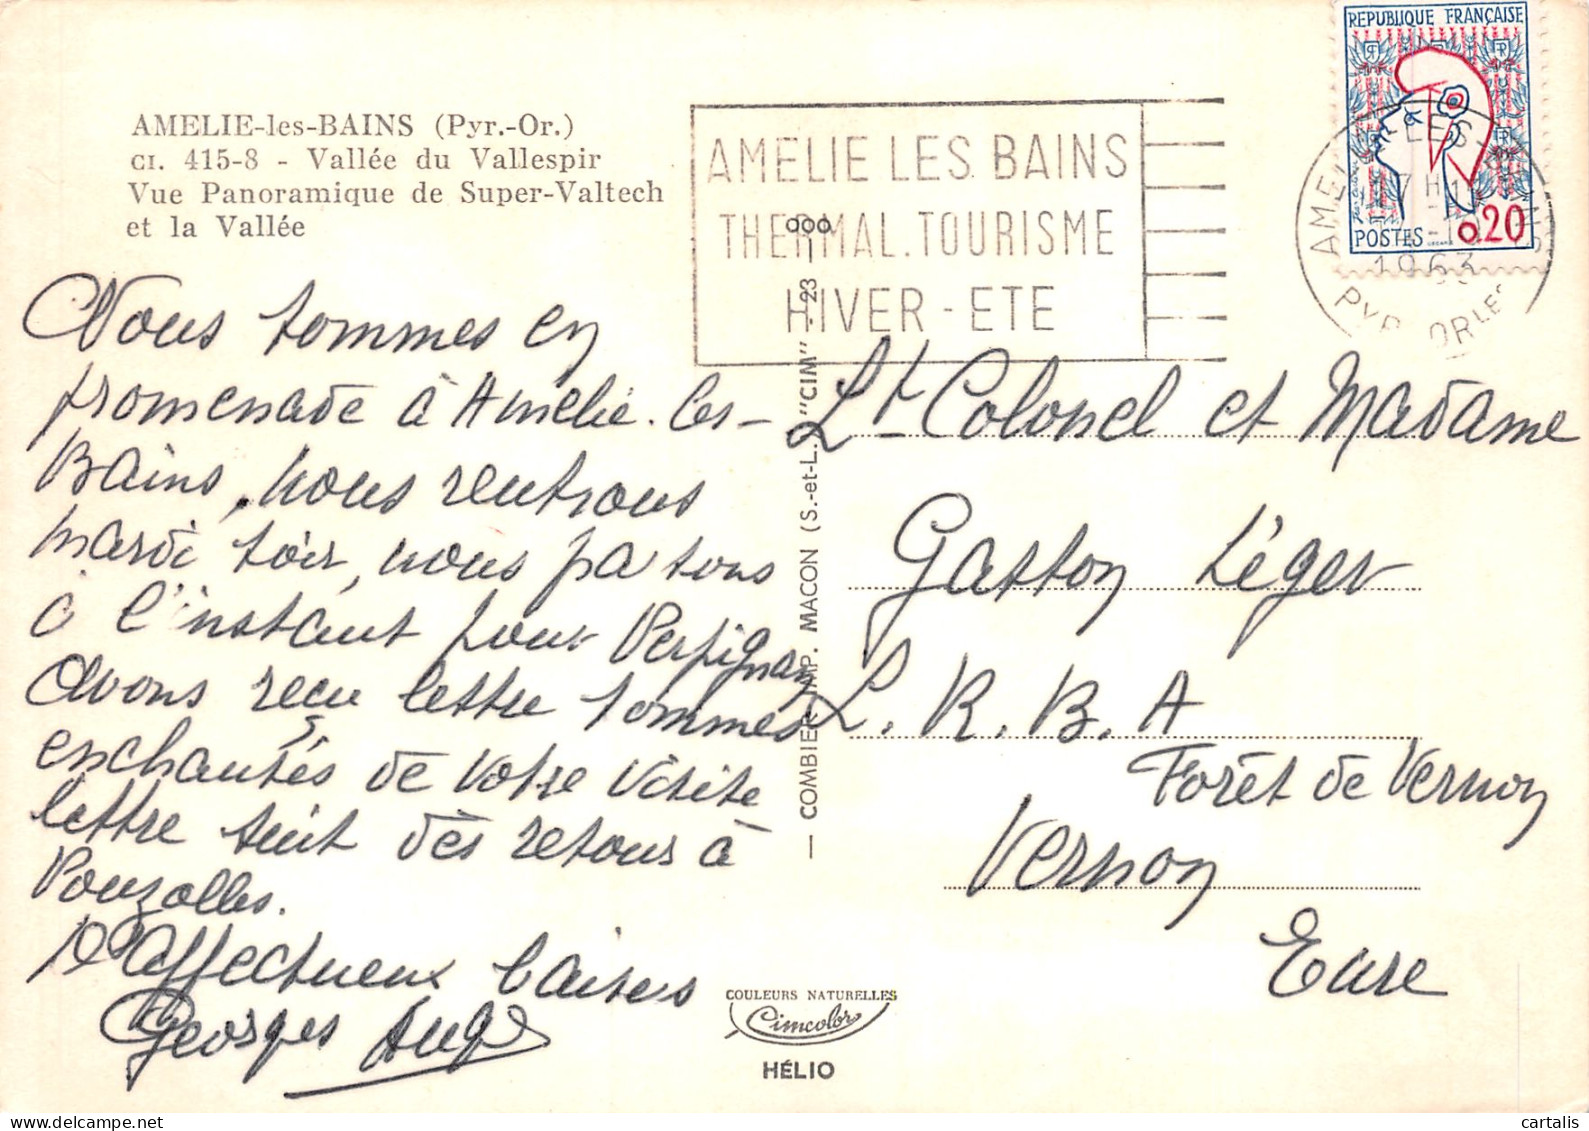 AMELIE-les-BAINS (Pyr.-Or.)
CI. 415-8 - Vallée du Vallespir
Vue Panoramique de Super-Valtech
et la Vallée
AMELIE LES BAINS
THERMAL.TOURISME
HIVER - ETE
REPUBLIQUE FRANÇAISE
POSTES 0.20
AMELIE LES BAINS
1963
PYR. ORLES
Nous sommes en
promenade à Amélie-les-
Bains, nous rentrons
mardi soir, nous partons
à l'instant pour Perpignan
avons reçu lettre sommes
enchantés de votre visite
lettre suit dès retour à
Pouzolles.
D'affectueux baisers
Georges Augé
Lt Colonel et Madame
Gaston Léger
L. R. B. A
Forêt de Vernon
Vernon
Eure
— COMBIER IMP. MACON (S.-et-L.) "CIM" 23
COULEURS NATURELLES
Cimcolor
HÉLIO
cartalis